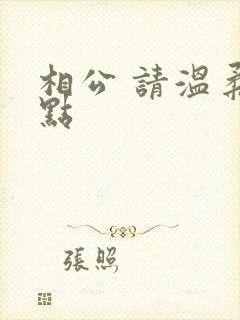 相公 請溫柔
點
張照